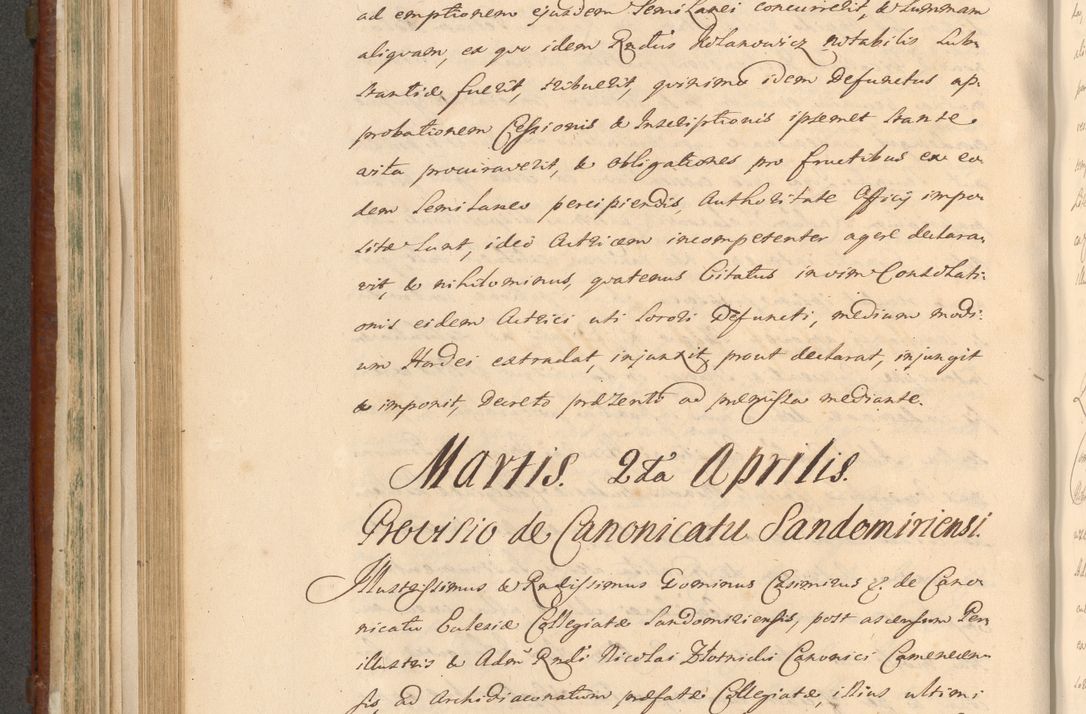 ad emptionem ejusdem SemiLanei concurrerit, & summam
aliquam, ex quo idem Rndus Kolanowicz notabilis sub-
stantiæ fuerit, tribuerit, quinimo idem Defunctus ap-
probationem Cessionis & Inscriptionis ipsemet stante
vita procuraverit, & obligationes pro fructibus ex eo-
dem SemiLaneo percipiendis, Authoritate Officij impo-
sitæ sunt, ideò Actricem incompetenter agere declara-
vit, & nihilominus, quatenus Citatus in vim Consolati-
onis eidem Actrici uti Sorori Defuncti, medium modi-
um Hordei extradat, injunxit, prout declarat, injungit
& imponit, Decreto præsenti ad præmissa mediante.
Martis. 2da Aprilis.
Provisio de Canonicatu Sandomiriensi.
Illustrissimus & Rndissimus Dominus Casimirus &. de Cano-
nicatu Eclesiæ Collegiatæ Sandomiriensis, post ascensum Per
illustris & Admˢ Rndi Nicolai Złotnicki Canonici Camenecen-
sis, ad Archidiaconatum præfatæ Collegiatæ, illius ultimi